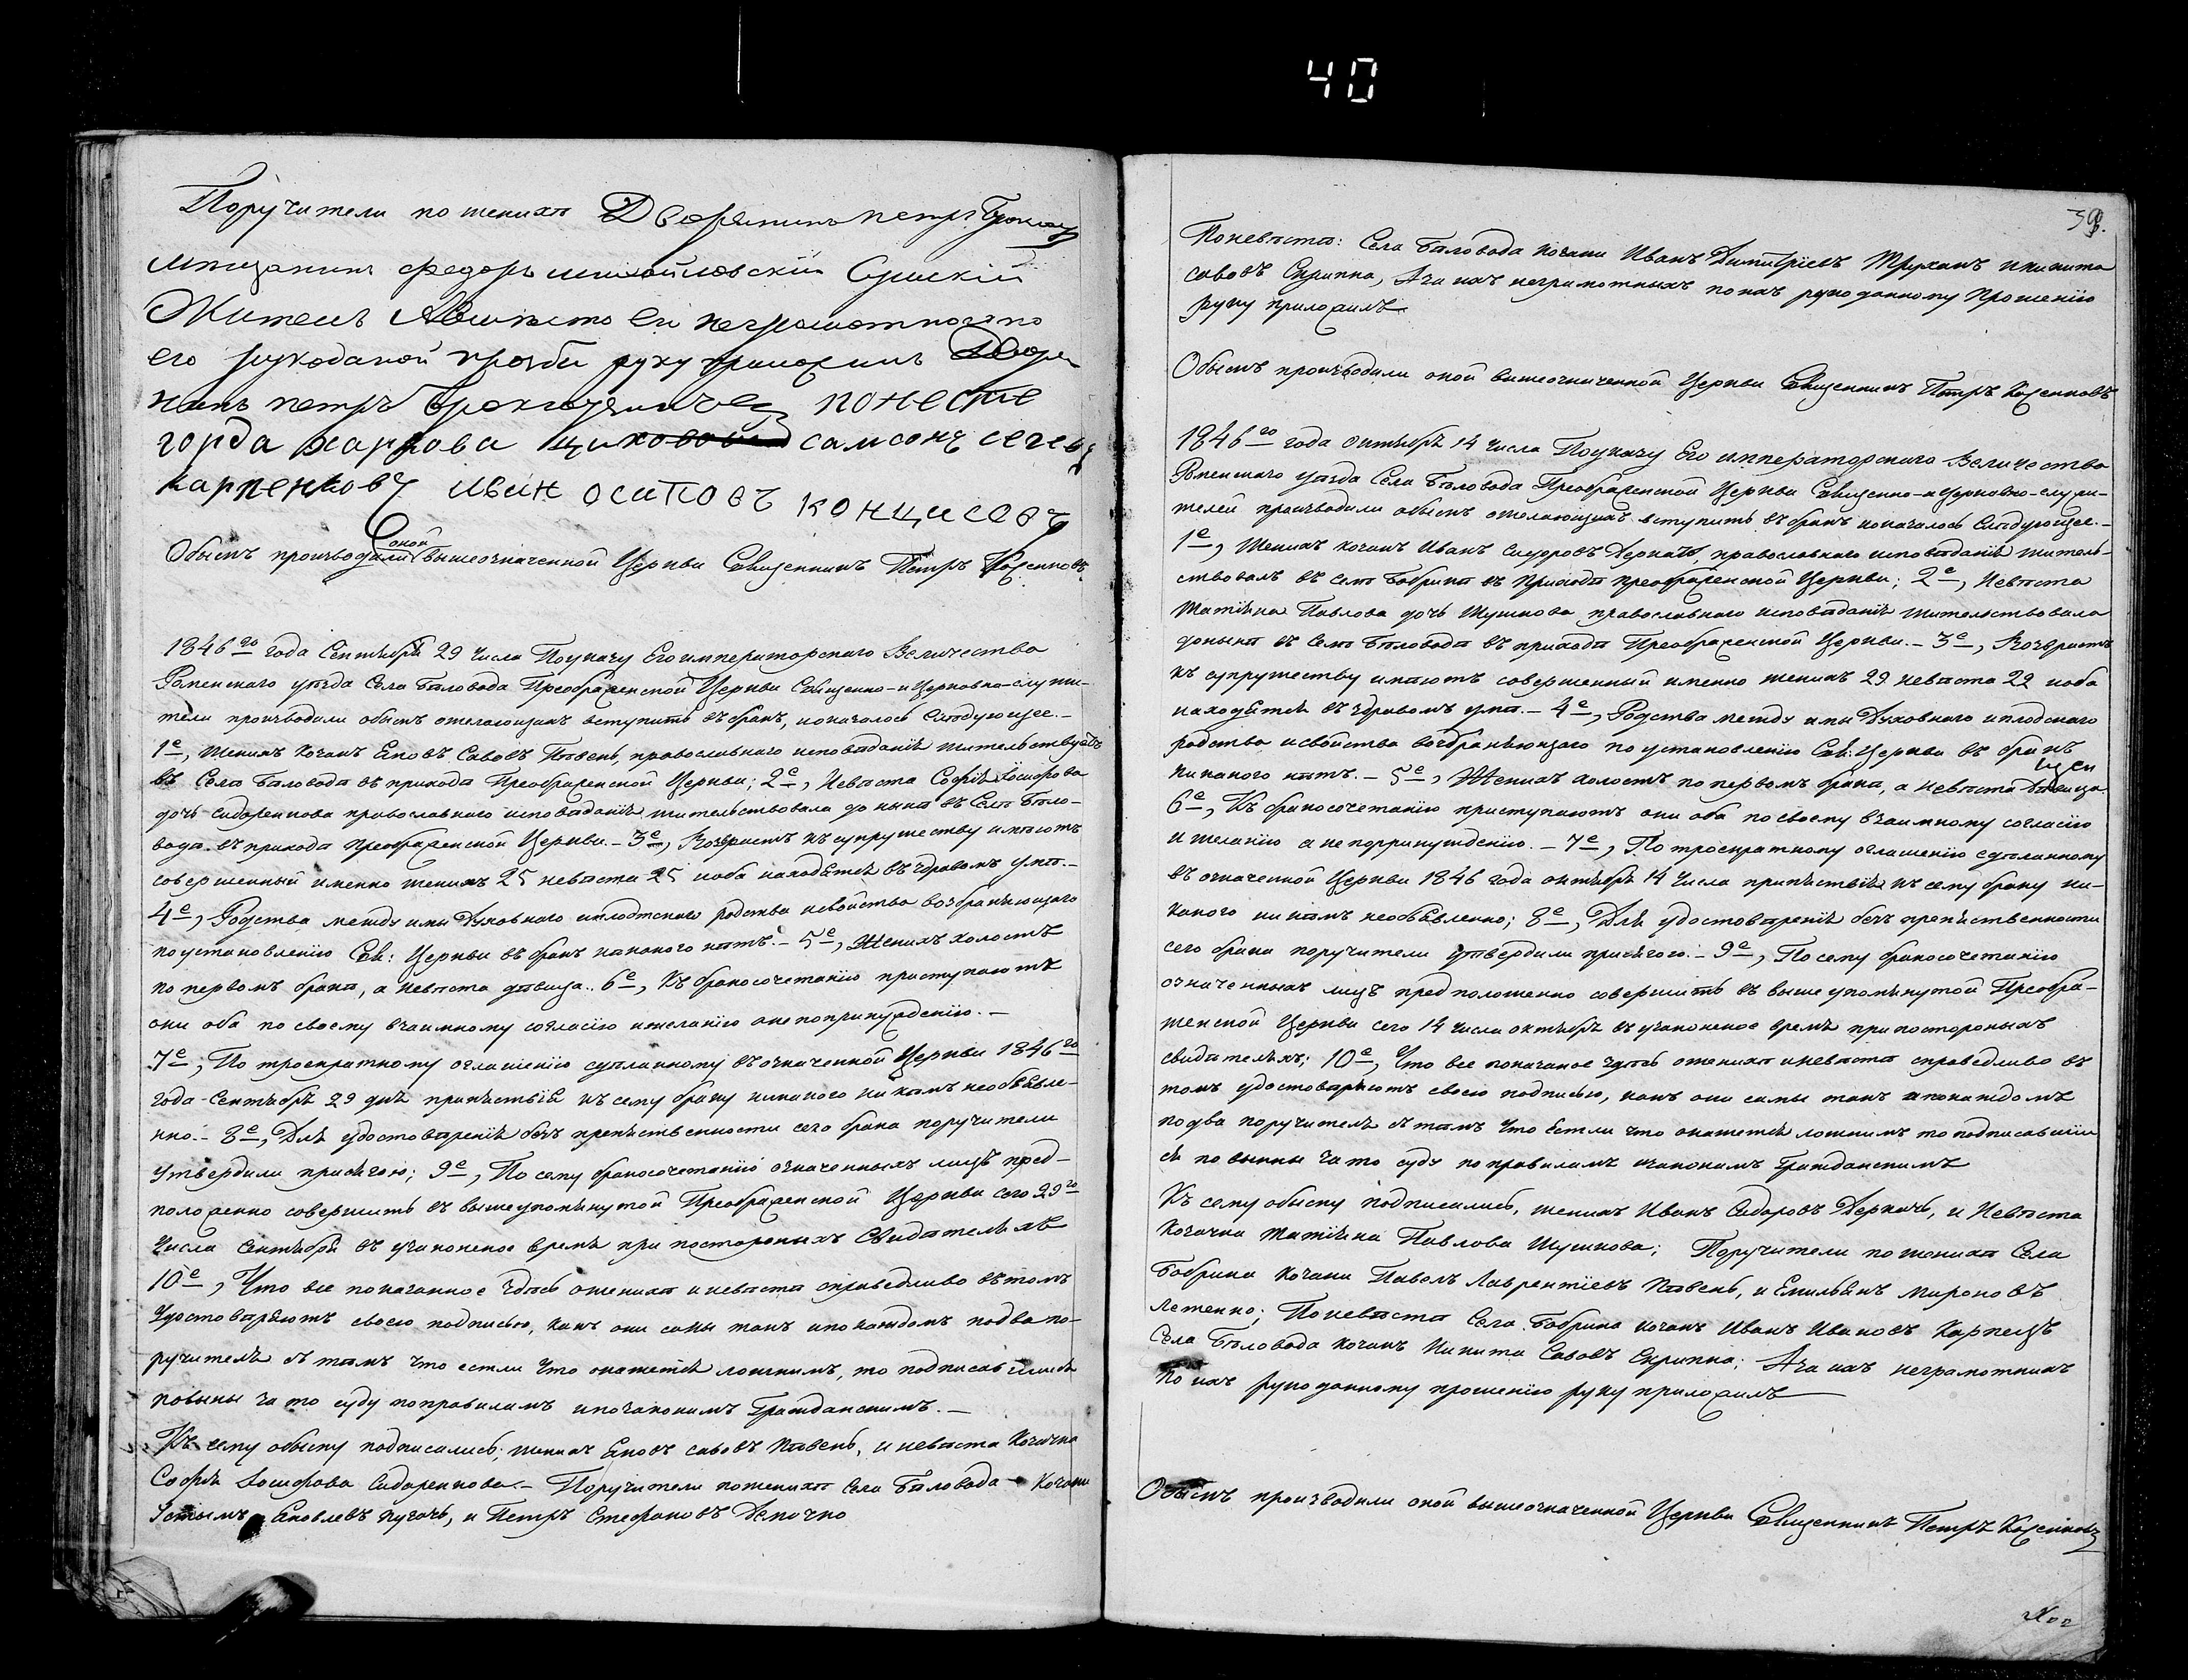 40
Поручители по женихѣ Дворянинъ петръ
мѣщанинъ федоръ михайловскій Сумскій
Житель неграмотного по
его рукоданой прозби руку приложилъ Дворя
нинъ петръ понесте
горда харкова самсонъ сегевъ
карпенковъ иван осиповъ концисевъ
Обыскъ производили оной вышеозначенной Церкви Священникъ Петръ Коженковъ
1846го года Сентября 29 числа По указу Его императорскаго Величества
Роменскаго уѣзда Села Бѣловода Преображенской Церкви Священно-и Церковно-служи-
тели производили обыскъ ожелающихъ вступить въ бракъ, и оказалось Слѣдующее.-
1е, Женихъ козакъ Яковъ Савовъ Пѣвень, православнаго исповѣданія жительствуетъ
въ Селѣ Бѣловодѣ въ приходѣ Преображенской Церкви; 2е, Невѣста Софія Іосифова
дочь Сидоренкова православнаго исповѣданія жительствовала до нынѣ въ Селѣ Бѣло-
водѣ въ приходѣ Преображенской Церкви.- 3е, Возрастъ къ супружеству имѣютъ
совершенный именно женихъ 25 невѣста 25 и оба находятся въ здравомъ умѣ.-
4е, Родства между ими Духовнаго и плотскаго родства и свойства возбраняющаго
по установленію Свя: Церкви въ бракъ никакого нѣтъ.- 5е, Женихъ холостъ
по первомъ бракѣ, а невѣста дѣвица.. 6е, Къ бракосочетанію приступаютъ
они оба по своему взаимному согласію и желанію а не по принужденію.-
7е, По троекратному оглашенію сдѣланному въ означенной Церкви 1846го
года Сентября 29 дня препятствія къ сему браку никакого ни кѣмъ необъявле-
нно.- 8е, Для удостовѣренія безъ препятственности сего брака поручители
утвердили присягою; 9е, По сему бракосочетанію означенныхъ лицъ пред-
положенно совершить въ вышеупомянутой Преображенской Церкви сего 29го
числа Сентября въ узаконеное время при постороныхъ Свидѣтеляхъ
10е, Что все показанное здѣсь о женихѣ и невѣстѣ справедливо въ томъ
Удостовѣряютъ своею подписью, какъ они самы такъ и по каждомъ по два по-
ручителя съ тѣмъ что естли что окажется ложнимъ, то подписавшиися
повыны за то суду по правиламъ и по законамъ Гражданскимъ.-
Къ сему обыску подписались; женихъ Яковъ савовъ Пѣвень, и невѣста Козачка
Софія Іосифова Сидоренкова.- Поручители по женихѣ села Бѣловода козаки
Устымъ Яковлевъ пугачь, и Петръ Стефановъ
39.
По невѣстѣ: Села Бѣловода козаки Иванъ Димитріевъ Труханъ и никита
савовъ Скрипка, А за ихъ неграмотныхъ по ихъ рукоданному прошенію
руку приложилъ
Обыскъ производили оной вишеозниченной Церкви Священникъ Петръ Коженковъ
1846го года октября 14 числа По указу Его императорскаго Величества
Роменскаго уѣзда Села Бѣловода Преображенской Церкви Священно-и Церковно-служи-
телей производили обыскъ ожелающихъ вступить въ бракъ и оказалось Слѣдующее.-
1е, Женихъ козакъ Иванъ Сидоровъ Деркачь, православнаго исповѣданія житель-
ствовалъ въ селѣ Бобрикѣ въ приходѣ преображенской Церкви; 2е, Невѣста
Татіяна Павлова дочь Шушкова православнаго исповѣданія жительствовала
донынѣ въ Селѣ Бѣловодѣ въ приходѣ Преображенской Церкви.- 3е, Возврастъ
къ супружеству имѣютъ совершенный именно женихъ 29 невѣста 22 и оба
находятся въ здравомъ умѣ.- 4е, Родства между ими Духовнаго и плодскаго
родства и свойства возбраняющаго по установленію Свя: Церкви въ бракъ
никакого нѣтъ.- 5е, Женихъ холостъ по первомъ бракѣ, а невѣста дѣвица.
6е, Къ бракосочетанію приступаютъ они оба по своему взаимному согласію
и желанію а не по принужденію.- 7е, По троекратному оглашенію сдѣланному
въ означенной Церкви 1846 года октября 14 числа припятствія къ сему браку ни-
какого ни кѣмъ необъявленно; 8е, Для удостовѣренія безъ препятственности
сего брака поручители утвердили присягою.- 9е, По сему бракосочетанію
означенныхъ лицъ предположенно совершить въ выше упомянутой Преобра-
женской Церкви сего 14 числа октября въ узаконеное время при постороныхъ
свидѣтеляхъ; 10е, Что все показаное здѣсь о женихѣ и невѣстѣ справедливо въ
томъ удостовѣряютъ своею подписью, какъ они самы такъ и по каждомъ
по два поручителя съ тѣмъ что Естли что окажется ложнимъ то подписавшии
ся повынны за то суду по правиламъ и законамъ Гражданскимъ
Къ сему обыску подписались, женихъ Иванъ Сидоровъ Деркачь, и Невѣста
Козачка Татіяна Павлова Шушкова; Поручители по женихѣ Села
Бобрика Козаки Павелъ Лаврентіевъ Пѣвень, и Емильянъ мироновъ
Летенко; По невѣстѣ Села Бобрика козакъ Иванъ Ивановъ Карпецъ
Села Бѣловода козакъ Никита Савовъ Скрипка; А за ихъ неграмотнихъ
по ихъ рукоданному прошенію руку приложилъ
Обыскъ производили оной вышеозначенной Церкви Священникъ Петръ Коженковъ